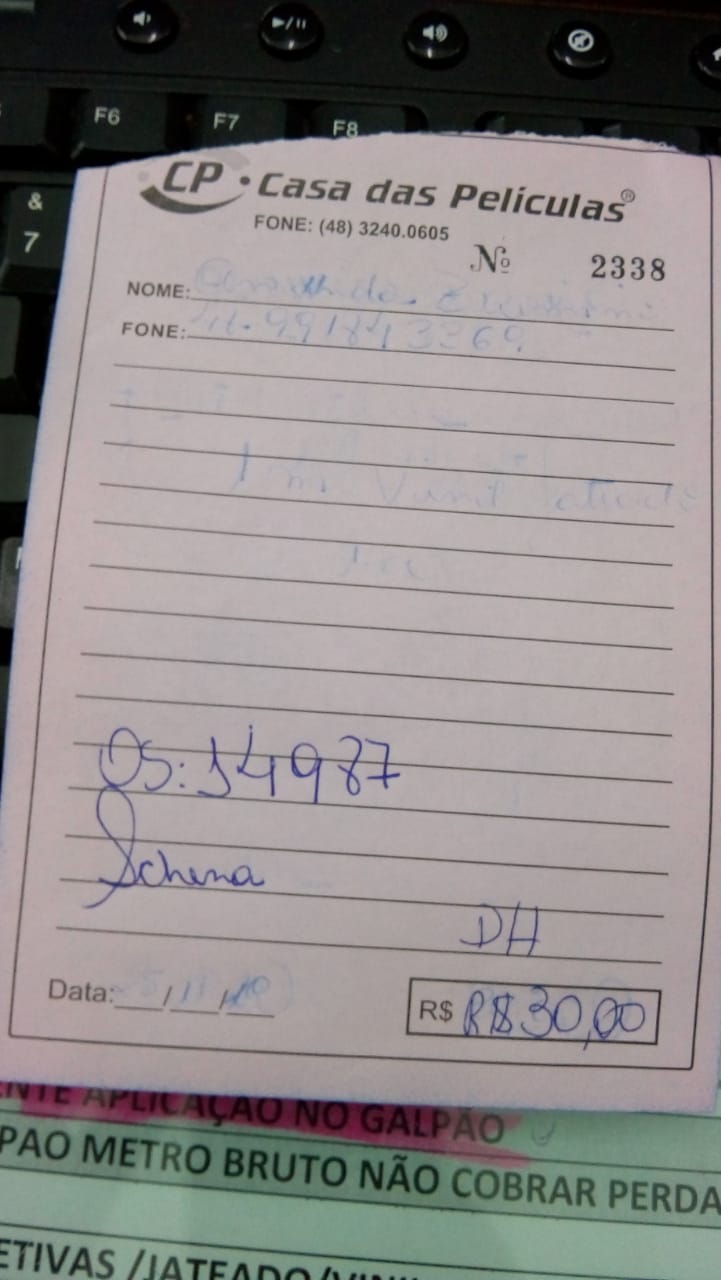 F6 F7 F8
&
7
CP • Casa das Películas®
FONE: (48) 3240.0605
Nº 2338
NOME:
FONE: 991843369
1 m Vinil
OS: 14987
Schena
DH
Data: __/11/__
R$ R$30,00
ENTE APLICAÇÃO NO GALPÃO
PAO METRO BRUTO NÃO COBRAR PERDA
ETIVAS /JATEADO/VINIL